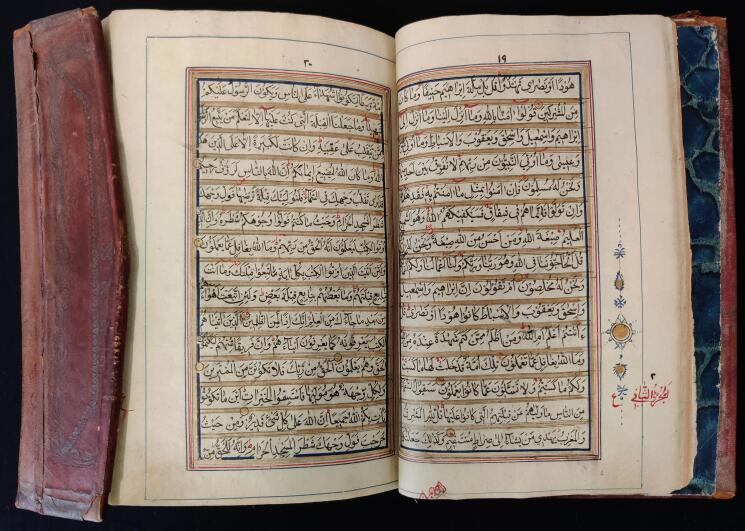 ١٩
هُودًا أَوْ نَصٰرٰى تَهْتَدُوا قُلْ بَلْ مِلَّةَ اِبْرٰهِيمَ حَنِيفًا وَمَا كَانَ
مِنَ الْمُشْرِكِينَ قُولُوا اٰمَنَّا بِاللّٰهِ وَمَا اُنْزِلَ اِلَيْنَا وَمَا اُنْزِلَ
اِبْرٰهِيمَ وَاِسْمٰعِيلَ وَاِسْحٰقَ وَيَعْقُوبَ وَالْاَسْبَاطِ وَمَا اُوتِيَ
وَعِيسٰى وَمَا اُوتِيَ النَّبِيُّونَ مِنْ رَبِّهِمْ لَا نُفَرِّقُ بَيْنَ اَحَدٍ
وَنَحْنُ لَهُ مُسْلِمُونَ فَاِنْ اٰمَنُوا بِمِثْلِ مَا اٰمَنْتُمْ بِهِ فَقَدِ
وَاِنْ تَوَلَّوْا فَاِنَّمَا هُمْ فِي شِقَاقٍ فَسَيَكْفِيكَهُمُ اللّٰهُ وَهُوَ
الْعَلِيمُ صِبْغَةَ اللّٰهِ وَمَنْ اَحْسَنُ مِنَ اللّٰهِ صِبْغَةً وَنَحْنُ لَهُ
قُلْ اَتُحَاجُّونَنَا فِي اللّٰهِ وَهُوَ رَبُّنَا وَرَبُّكُمْ وَلَنَا اَعْمَالُنَا وَلَكُمْ
وَنَحْنُ لَهُ مُخْلِصُونَ اَمْ تَقُولُونَ اِنَّ اِبْرٰهِيمَ وَاِسْمٰعِيلَ
وَاِسْحٰقَ وَيَعْقُوبَ وَالْاَسْبَاطَ كَانُوا هُودًا اَوْ نَصٰرٰى
ءَاَنْتُمْ اَعْلَمُ اَمِ اللّٰهُ وَمَنْ اَظْلَمُ مِمَّنْ كَتَمَ شَهَادَةً عِنْدَهُ مِنَ
وَمَا اللّٰهُ بِغَافِلٍ عَمَّا تَعْمَلُونَ تِلْكَ اُمَّةٌ قَدْ خَلَتْ لَهَا مَا كَسَبَتْ
وَلَكُمْ مَا كَسَبْتُمْ وَلَا تُسْئَلُونَ عَمَّا كَانُوا يَعْمَلُونَ سَيَقُولُ
مِنَ النَّاسِ مَا وَلّٰيهُمْ عَنْ قِبْلَتِهِمُ الَّتِي كَانُوا عَلَيْهَا قُلْ لِلّٰهِ الْمَشْرِقُ
وَالْمَغْرِبُ يَهْدِي مَنْ يَشَاءُ اِلٰى صِرَاطٍ مُسْتَقِيمٍ وَكَذٰلِكَ جَعَلْنَاكُمْ
٢
الجزء الثاني
٢٠
لِتَكُونُوا شُهَدَاءَ عَلَى النَّاسِ وَيَكُونَ الرَّسُولُ عَلَيْكُمْ
وَمَا جَعَلْنَا الْقِبْلَةَ الَّتِي كُنْتَ عَلَيْهَا اِلَّا لِنَعْلَمَ مَنْ يَتَّبِعُ
يَنْقَلِبُ عَلٰى عَقِبَيْهِ وَاِنْ كَانَتْ لَكَبِيرَةً اِلَّا عَلَى الَّذِينَ هَدَى
وَمَا كَانَ اللّٰهُ لِيُضِيعَ اِيمَانَكُمْ اِنَّ اللّٰهَ بِالنَّاسِ لَرَؤُفٌ رَحِيمٌ
قَدْ نَرٰى تَقَلُّبَ وَجْهِكَ فِي السَّمَاءِ فَلَنُوَلِّيَنَّكَ قِبْلَةً تَرْضٰيهَا فَوَلِّ وَجْهَكَ
شَطْرَ الْمَسْجِدِ الْحَرَامِ وَحَيْثُ مَا كُنْتُمْ فَوَلُّوا وُجُوهَكُمْ شَطْرَهُ وَاِنَّ الَّذِينَ
اُوتُوا الْكِتٰبَ لَيَعْلَمُونَ اَنَّهُ الْحَقُّ مِنْ رَبِّهِمْ وَمَا اللّٰهُ بِغَافِلٍ عَمَّا يَعْمَلُونَ
وَلَئِنْ اَتَيْتَ الَّذِينَ اُوتُوا الْكِتٰبَ بِكُلِّ اٰيَةٍ مَا تَبِعُوا قِبْلَتَكَ وَمَا اَنْتَ
بِتَابِعٍ قِبْلَتَهُمْ وَمَا بَعْضُهُمْ بِتَابِعٍ قِبْلَةَ بَعْضٍ وَلَئِنِ اتَّبَعْتَ اَهْوَاءَهُمْ
مِنْ بَعْدِ مَا جَاءَكَ مِنَ الْعِلْمِ اِنَّكَ اِذًا لَمِنَ الظّٰلِمِينَ الَّذِينَ اٰتَيْنَاهُمُ
الْكِتٰبَ يَعْرِفُونَهُ كَمَا يَعْرِفُونَ اَبْنَاءَهُمْ وَاِنَّ فَرِيقًا مِنْهُمْ لَيَكْتُمُونَ
الْحَقَّ وَهُمْ يَعْلَمُونَ الْحَقُّ مِنْ رَبِّكَ فَلَا تَكُونَنَّ مِنَ الْمُمْتَرِينَ
وَلِكُلٍّ وِجْهَةٌ هُوَ مُوَلِّيهَا فَاسْتَبِقُوا الْخَيْرَاتِ اَيْنَ مَا تَكُونُوا
يَأْتِ بِكُمُ اللّٰهُ جَمِيعًا اِنَّ اللّٰهَ عَلٰى كُلِّ شَيْءٍ قَدِيرٌ وَمِنْ حَيْثُ
خَرَجْتَ فَوَلِّ وَجْهَكَ شَطْرَ الْمَسْجِدِ الْحَرَامِ وَاِنَّهُ لَلْحَقُّ مِنْ